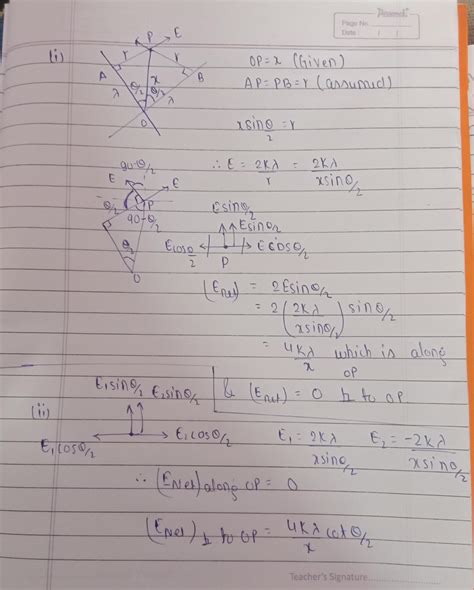 Page No.
Date / /
(i)
P
E
r
r
A
B
x
θ/2
θ/2
λ
λ
O
OP = x (Given)
AP = PB = r (assumed)
x sinθ/2 = r
∴ E = 2Kλ/r = 2Kλ/(x sinθ/2)
90-θ/2
E
E
θ/2
P
90-θ/2
θ/2
O
E sinθ/2
E sinθ/2
E cosθ/2
E cosθ/2
P
(E_net) = 2E sinθ/2
= 2(2Kλ/(x sinθ/2)) sinθ/2
= 4Kλ/x which is along OP
& (E_net) = 0 ⊥ to OP
(ii)
E₁ sinθ/2 E₂ sinθ/2
E₁ cosθ/2
E₁ cosθ/2
E₁ = 2Kλ/(x sinθ/2) E₂ = -2Kλ/(x sinθ/2)
∴ (E_Net) along OP = 0
(E_Net) ⊥ to OP = 4Kλ/x cot θ/2
Teacher's Signature